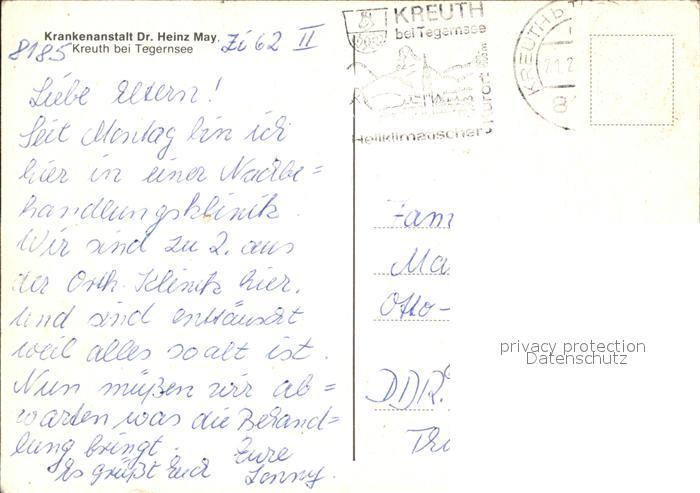 Krankenanstalt Dr. Heinz May.
8185 Kreuth bei Tegernsee
Zi 62 II
KREUTH
bei Tegernsee
Heilklimatischer
Kurort
KREUTH B
21.2
8
Liebe Eltern!
Seit Montag bin ich
hier in einer Nachbe=
handlungsklinik.
Wir sind zu 2. aus
der Orth. Klinik hier.
Und sind enttäuscht
weil alles so alt ist.
Nun müßen wir ab=
warten was die Behand=
lung bringt.
Es grüßt Euch Eure
Fam
Ma
Otto-
DDR.
privacy protection
Datenschutz